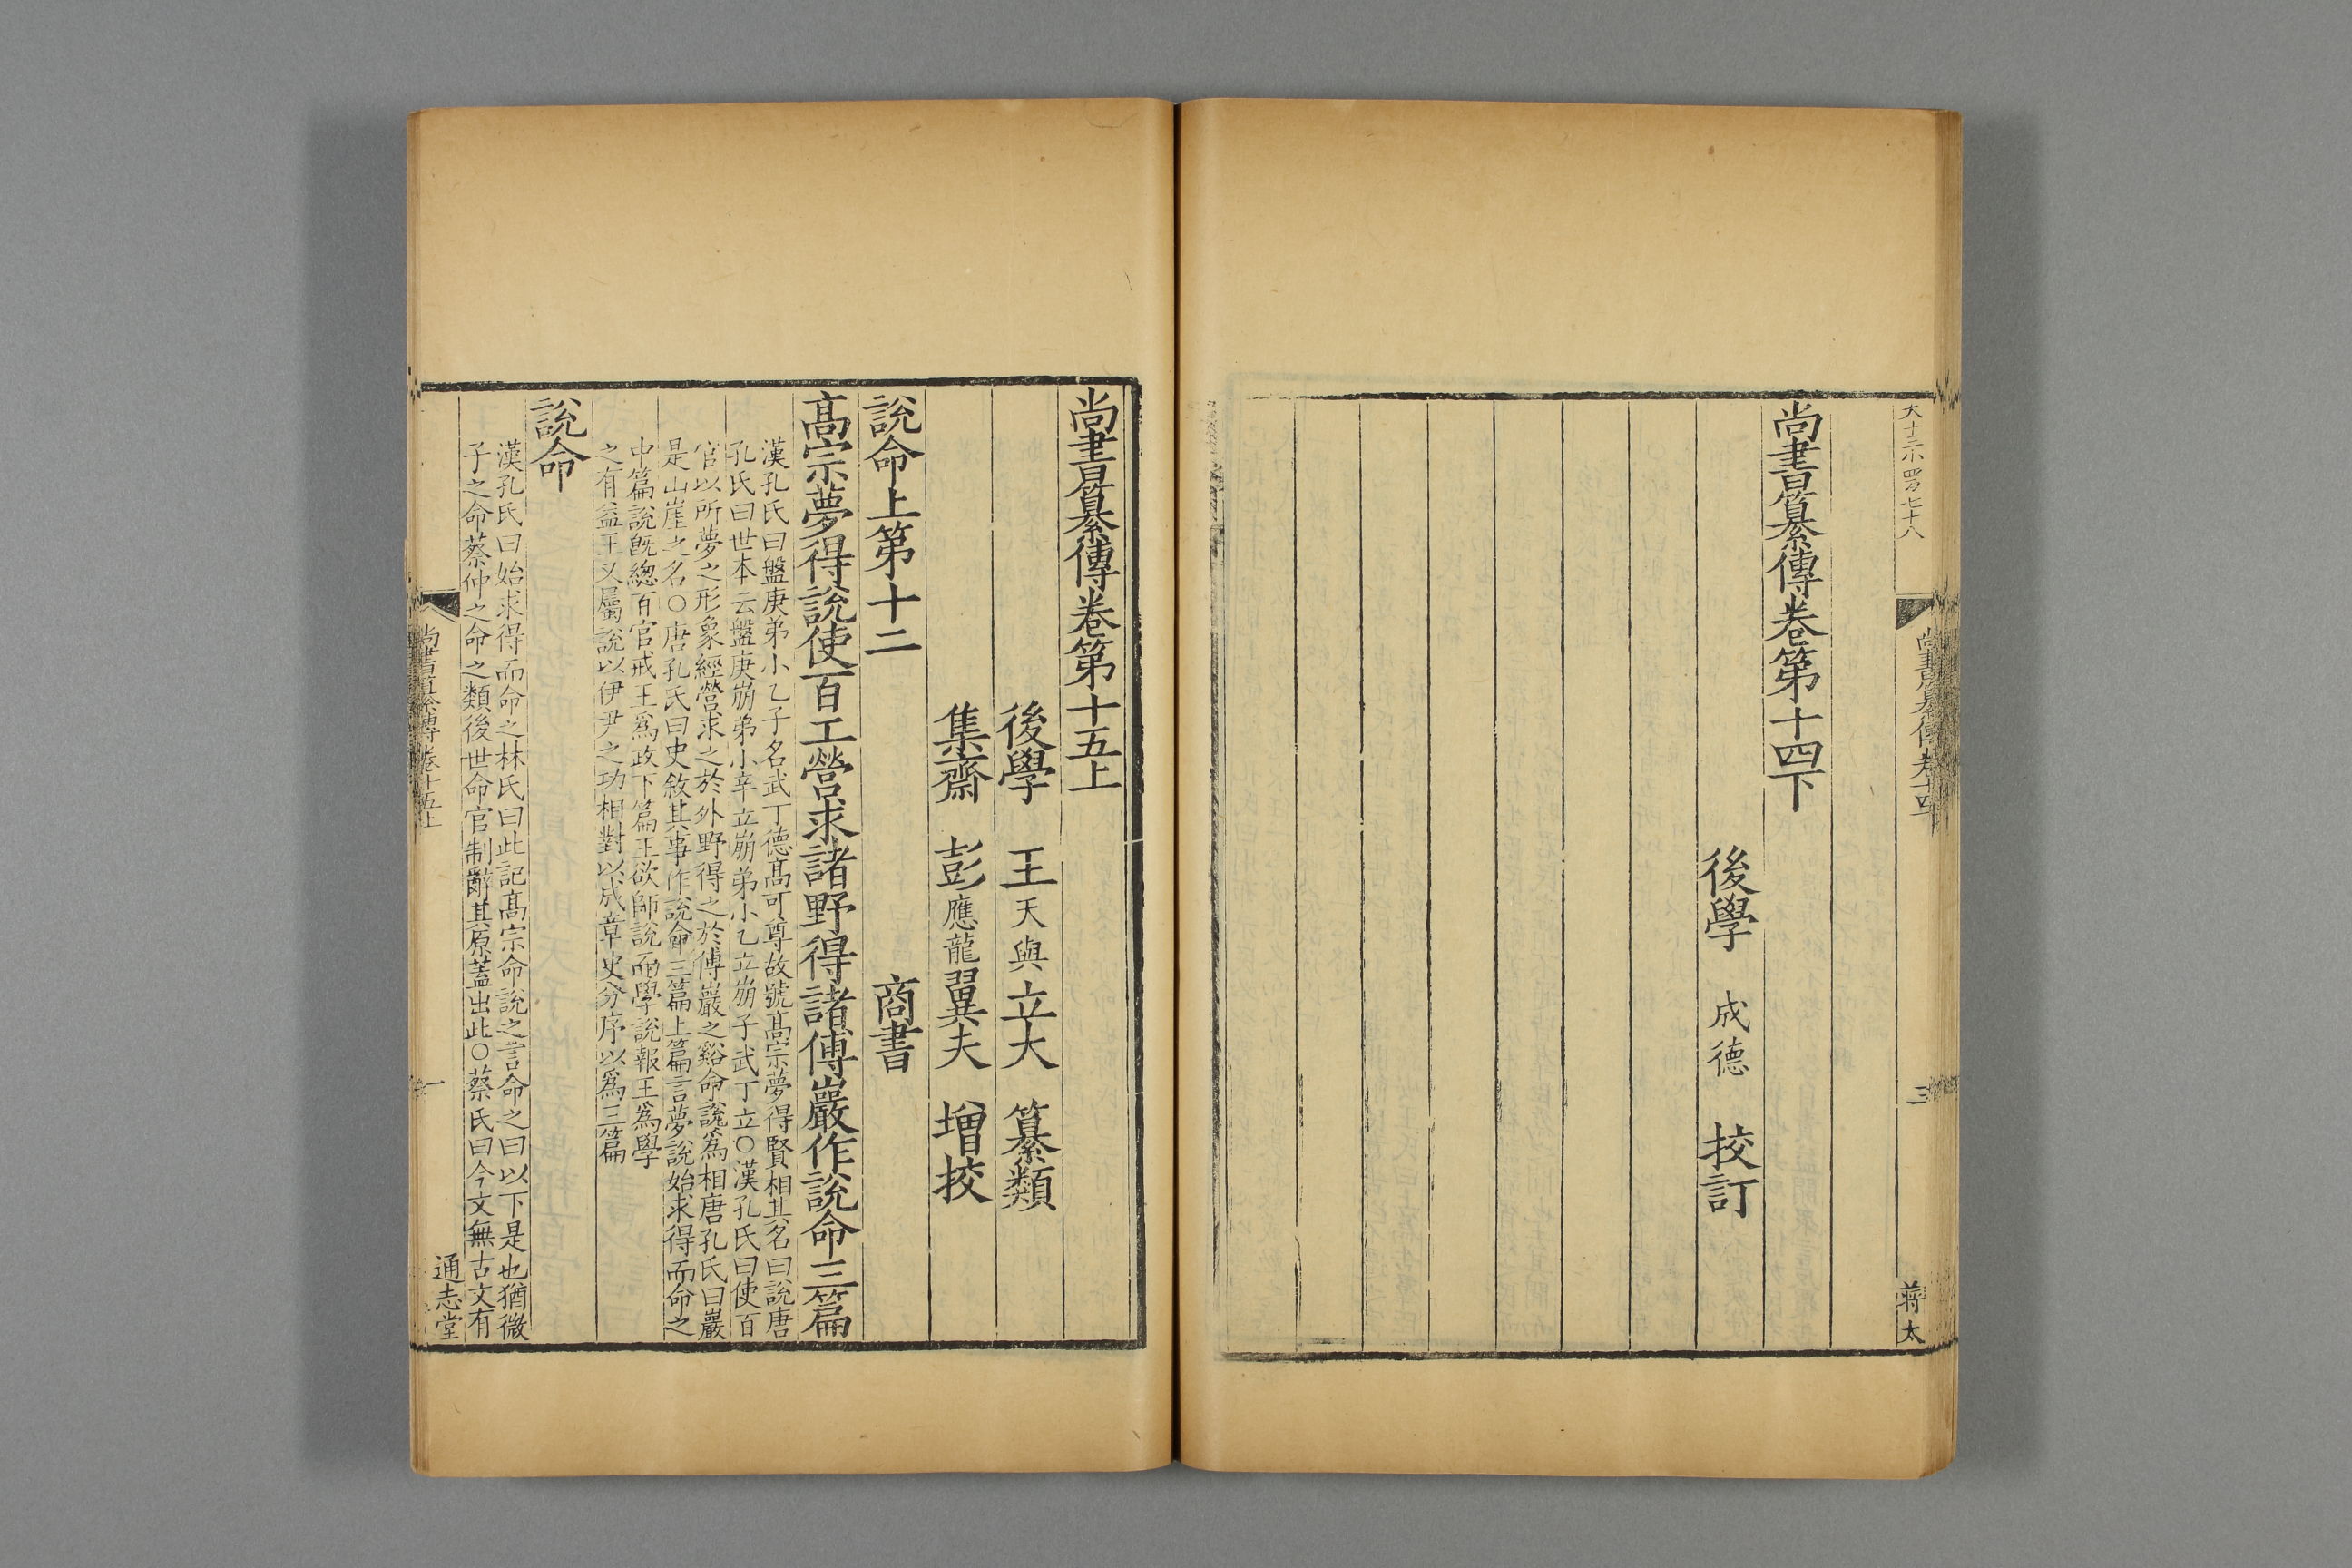 大十三小四百七十八
尚書纂傳卷十四
三
蔣太
尚書纂傳卷第十四下
後學　成德　校訂
尚書纂傳卷第十五上
後學　王天與立大　纂類
集齋　彭應龍翼夫　增挍
說命上第十二　商書
高宗夢得說使百工營求諸野得諸傅巖作說命三篇
漢孔氏曰盤庚弟小乙子名武丁德高可尊故號高宗夢得賢相其名曰說唐
孔氏曰世本云盤庚崩弟小辛立崩弟小乙立崩子武丁立○漢孔氏曰使百
官以所夢之形象經營求之於外野得之於傅巖之谿命說爲相唐孔氏曰巖
是山崖之名○唐孔氏曰史敘其事作說命三篇上篇言夢說始求得而命之
中篇說旣緫百官戒王爲政下篇王欲師說而學說報王爲學
之有益王又屬說以伊尹之功相對以成章史分序以爲三篇
說命
漢孔氏曰始求得而命之林氏曰此記高宗命說之言命之曰以下是也猶微
子之命蔡仲之命之類後世命官制辭其原蓋出此○蔡氏曰今文無古文有
尚書纂傳卷十五上
一
通志堂